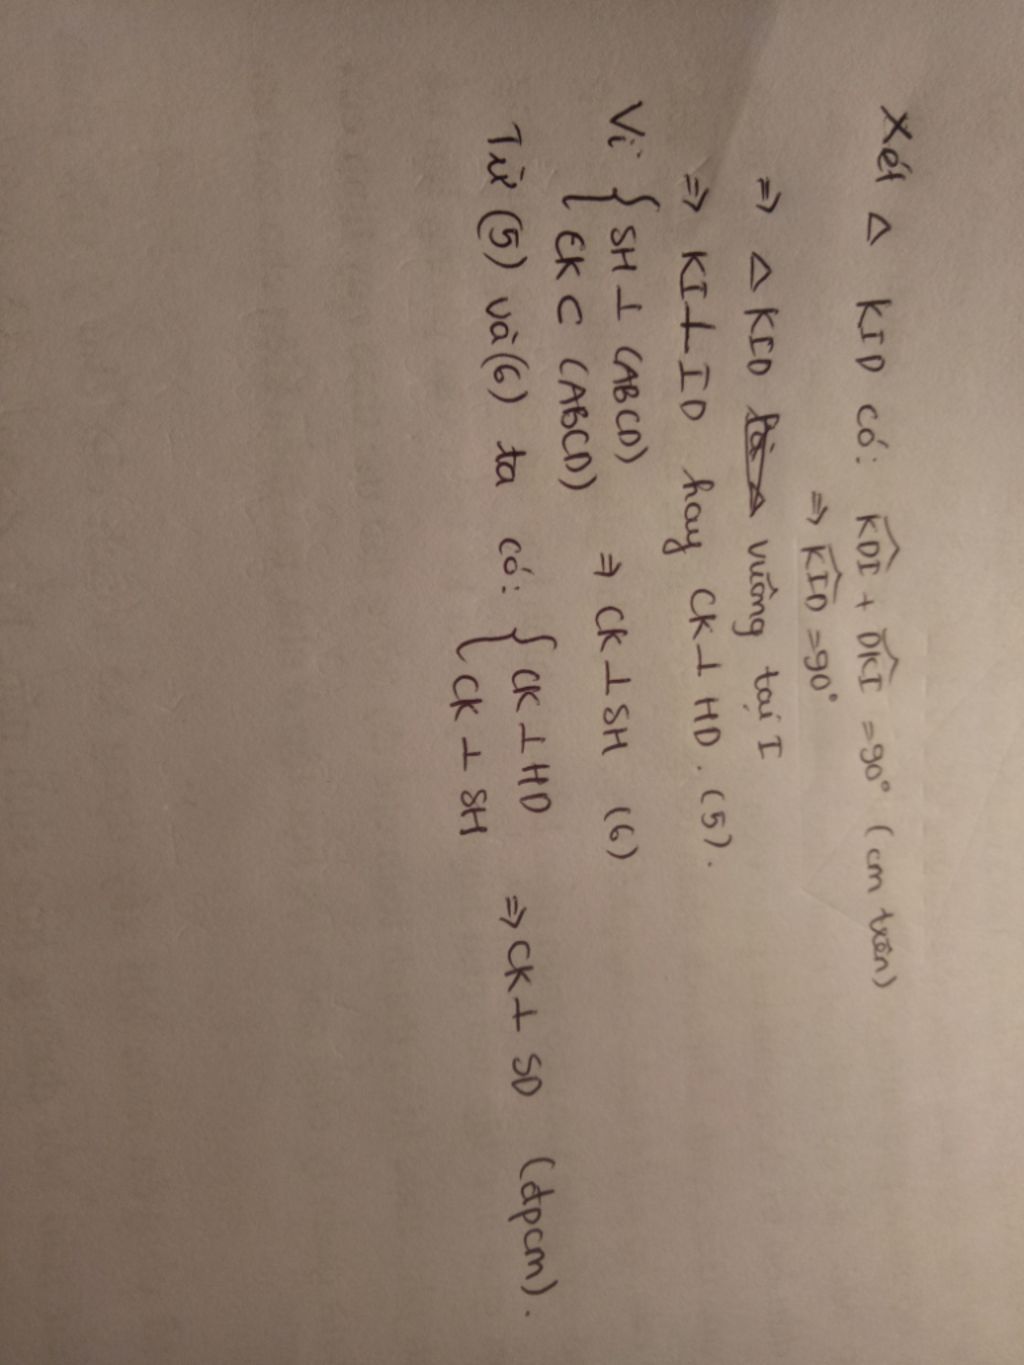 Xét Δ KID có: $\widehat{KDI}$ + $\widehat{DKI}$ = 90° (cm trên)
⇒ $\widehat{KID}$ = 90°
⇒ Δ KID vuông tại I
⇒ KI ⊥ ID hay CK ⊥ HD. (5).
Vì { SH ⊥ (ABCD)
CK ⊂ (ABCD) ⇒ CK ⊥ SH (6)
Từ (5) và (6) ta có: { CK ⊥ HD
CK ⊥ SH ⇒ CK ⊥ SD (đpcm).